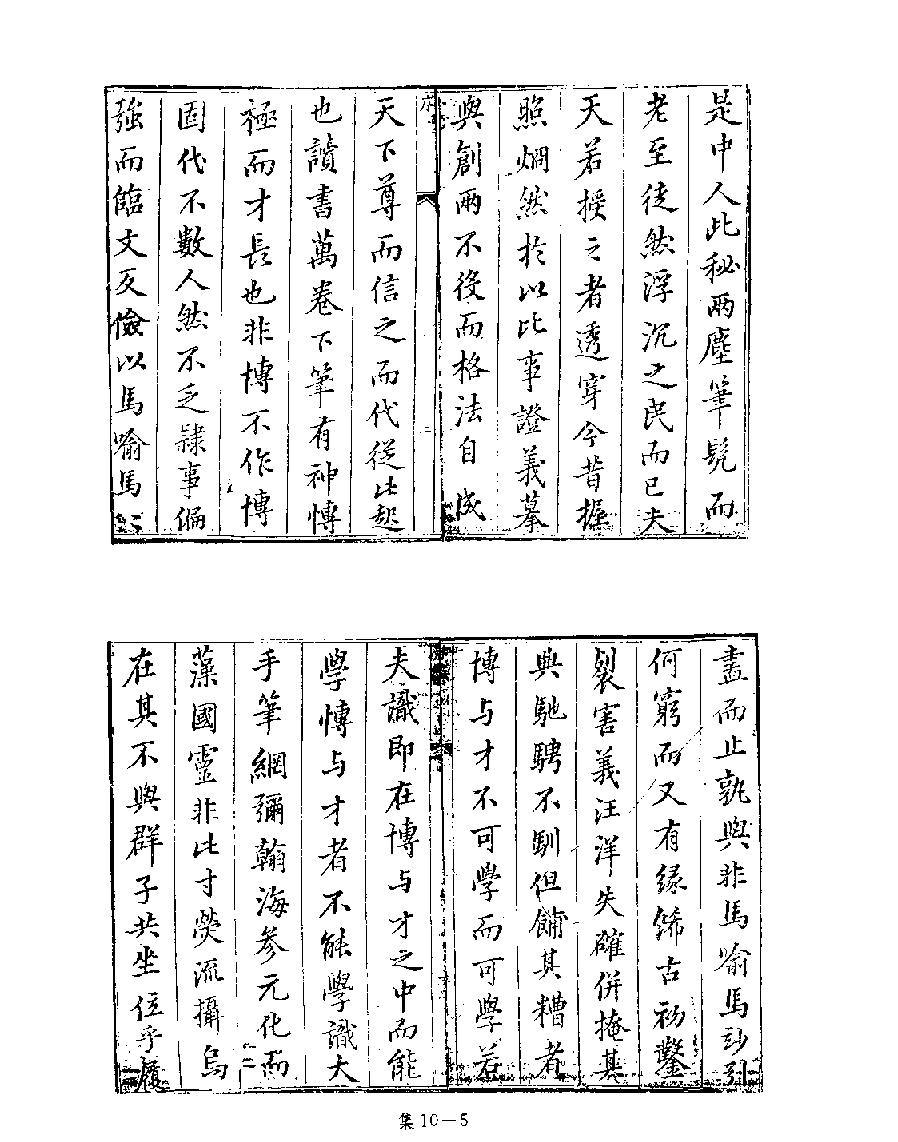 是中人此秘兩塵筆髡而
老至徒然浮沉之民而已夫
天若授之者透穿今昔握
照烱然於以比事證義摹
與創兩不後而格法自成
天下尊而信之而代從此起
也讀書萬卷下筆有神博
極而才長也非博不作博
固代不數人然不乏隸事偏
強而臨文反儉以馬喻馬
盡而止孰與非馬喻馬玅引
何窮而又有緣飾古初鑿
裂害義汪洋失確併掩其
與馳騁不馴但餔其糟者
博与才不可學而可學若
夫識即在博与才之中而能
學博与才者不能學識大
手筆網彌翰海參元化而
藻國靈非比寸熒流攝烏
在其不與群子共坐位乎履
集10-5